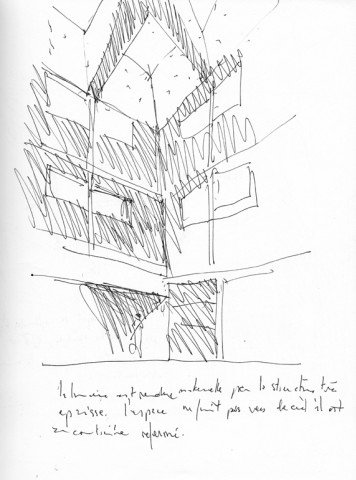 la lumière est rendue matérielle par la structure très
épaisse. l'espace ne fuit pas vers le ciel il est
au contraire refermé.